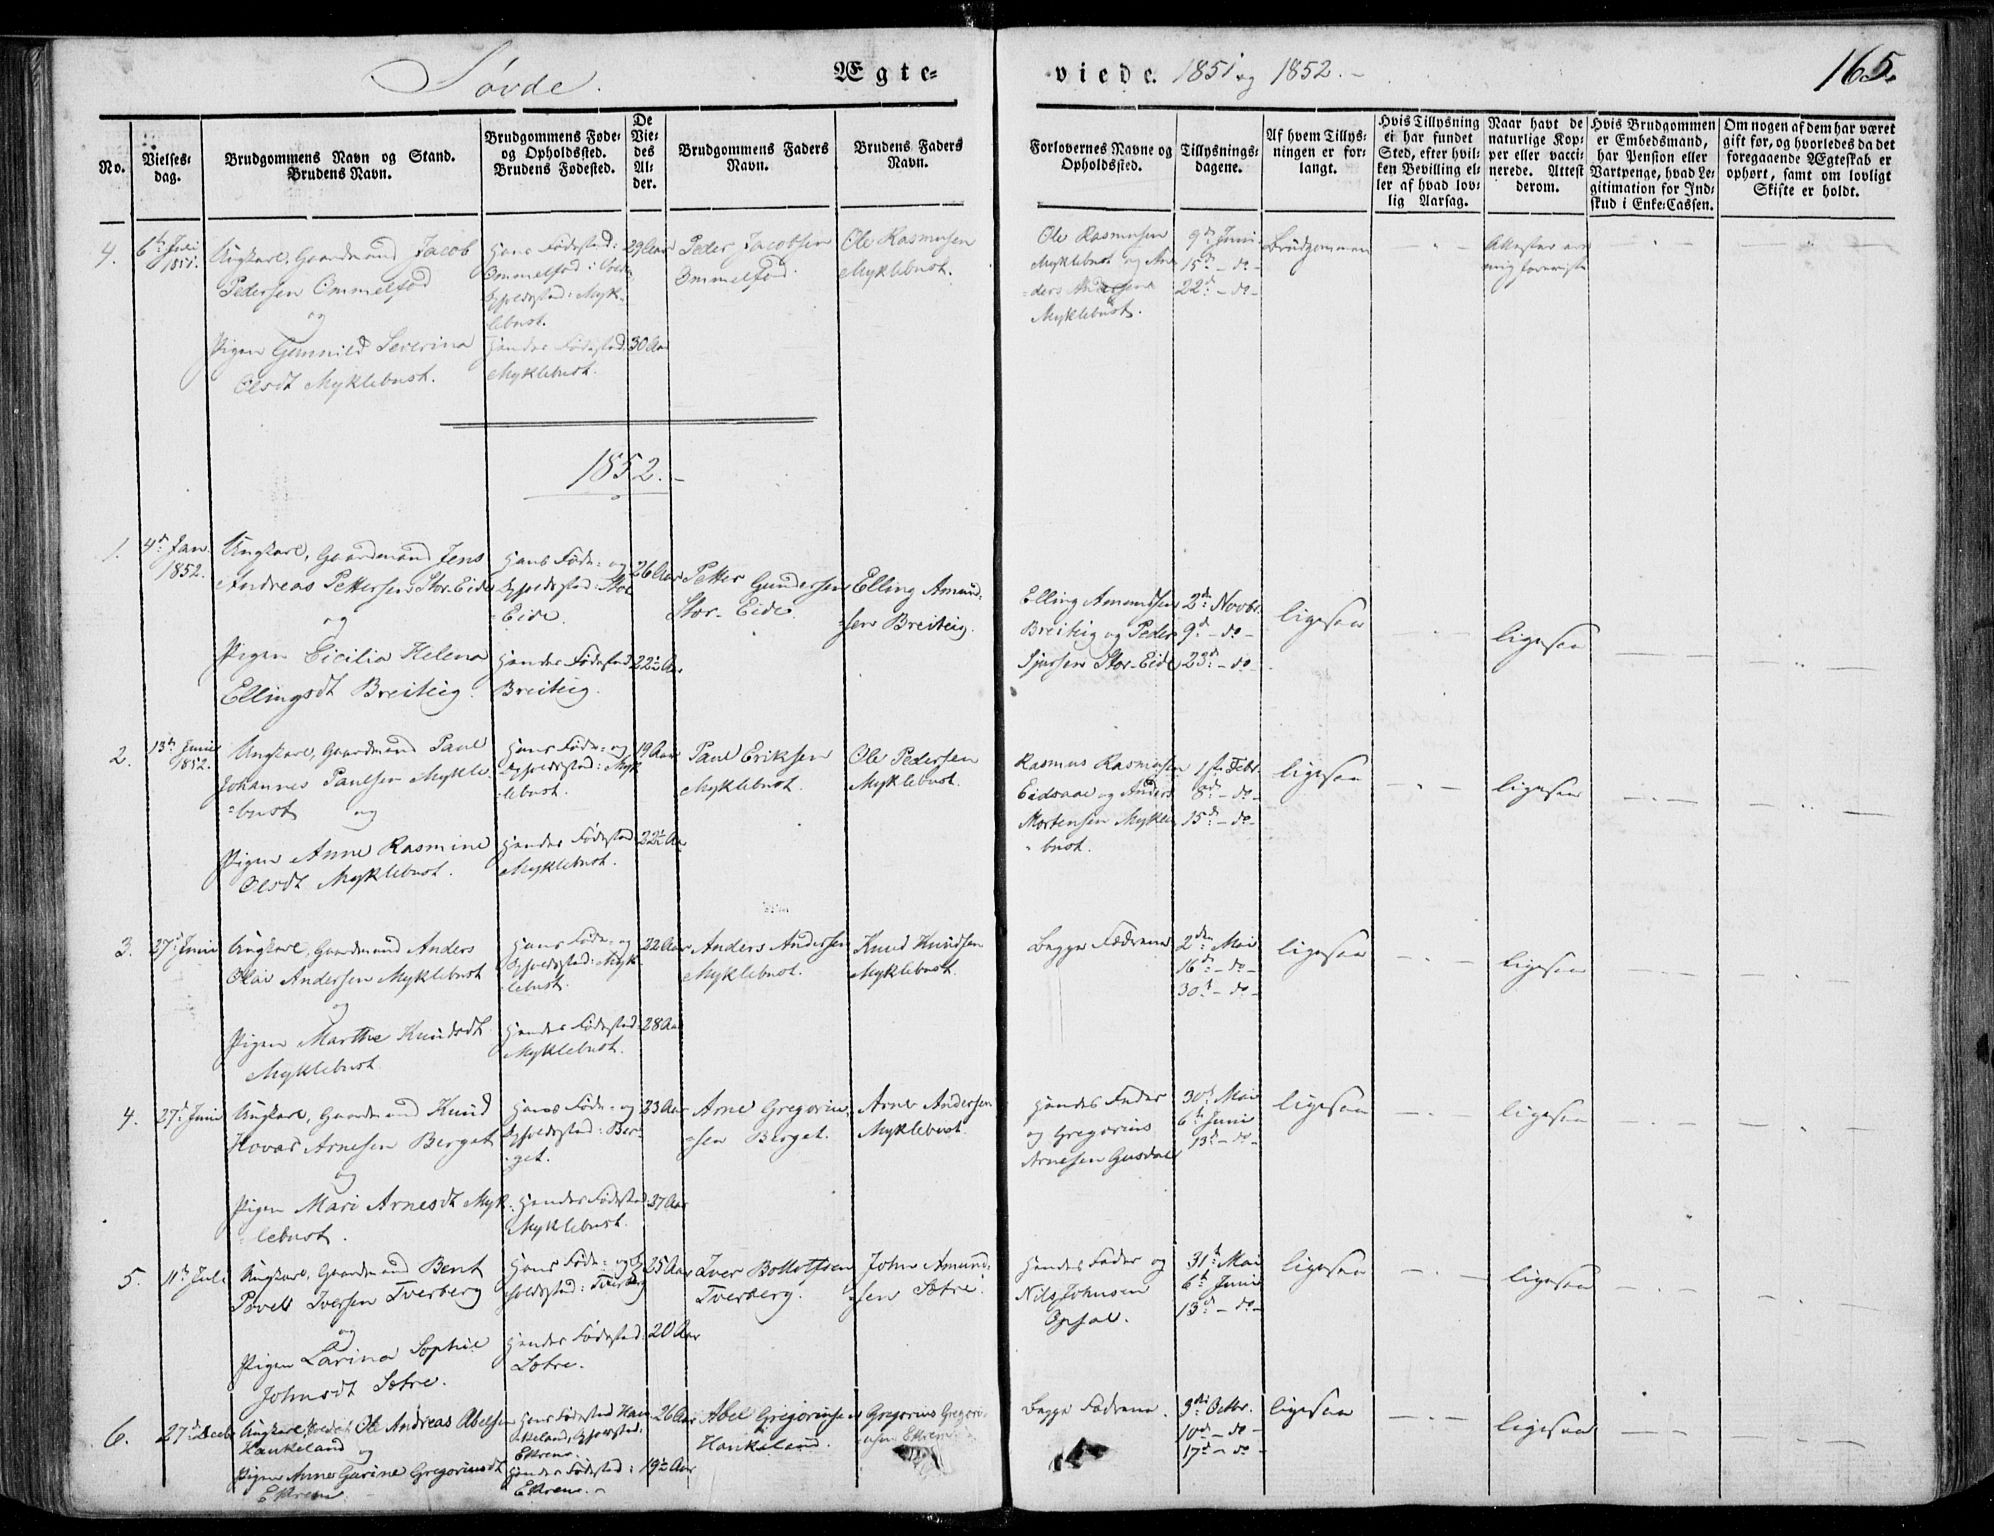 Søvde.
Ægte-
viede. 1851 og 1852.-
165.
No.
Vielses-
dag.
Brudgommens Navn og Stand.
Brudens Navn.
Brudgommens Føde-
og Opholdssted.
Brudens Fødested.
De
Vie-
des
Al-
der.
Brudgommens Faders
Navn.
Brudens Faders
Navn.
Forlovernes Navne og
Opholdssted.
Tillysnings-
dagene.
Af hvem Tillys-
ningen er for-
langt.
Hvis Tillysning
ei har fundet
Sted, efter hvil-
ken Bevilling el-
ler af hvad lov-
lig Aarsag.
Naar havt de
naturlige Kop-
per eller vacci-
nerede. Attest
derom.
Hvis Brudgommen
er Embedsmand,
har Pension eller
Vartpenge, hvad Le-
gitimation for Ind-
skud i Enke-Cassen.
Om nogen af dem har været
gift før, og hvorledes da det
foregaaende Ægteskab er
ophørt, samt om lovligt
Skifte er holdt.
4.
6te Juli
1851.
Ungkarl, Gaardmand Jacob
Pedersen Ommelfod
og
Pigen Gunnild Severina
Olsdt Myklebust.
Hans Fødestad:
Ommelfod i
Opholdsstad: Myk-
lebust.
Hendes Fødestad.
Myklebust.
29 Aar
30 Aar
Peder Jacobsen
Ommelfod.
Ole Rasmusen
Myklebust.
Ole Rasmusen
Myklebust og An-
ders Andersen
Myklebust.
9de Juni
15de - do -
22de - do -
Brudgommen
Attester ere
mig foreviste
1852.-
1.
4de Jan.
1852.
Ungkarl, Gaardmand Jens
Andreas Pettersen Stor-Eide
og
Pigen Cicilia Helena
Ellingsdt Breiteig.
Hans Føde- og
Opholdsstad: Stor
Eide.
Hendes Fødestad
Breiteig.
26 Aar
22½ Aar
Petter Gundersen
Stor-Eide.
Elling Amund-
sen Breiteig.
Elling Amundsen
Breiteig og Peder
Sjursen Stor-Eide
2de Novbr.
9de - do -
23de - do -
ligesaa
ligesaa
2.
13de Juni
1852.
Ungkarl, Gaardmand Paul
Johannes Paulsen Mykle-
bust og
Pigen Anne Rasmine
Olsdt Myklebust.
Hans Føde- og
Opholdsstad: Myk
lebust.
Hendes Fødestad
Myklebust.
19 Aar
22½ Aar
Paul Eriksen
Myklebust.
Ole Pedersen
Myklebust.
Rasmus Rasmusen
Eidsaae og Anders
Mortensen Mykle-
bust.
1ste Febr.
8de - do -
15de - do -
ligesaa
ligesaa
3.
27de Juni
Ungkarl, Gaardmand Anders
Olai Andersen Myklebust
og
Pigen Marthe Knudsdt
Myklebust.
Hans Føde- og
Opholdsstad: Myk-
lebust.
Hendes Fødestad:
Myklebust.
22 Aar
28 Aar
Anders Andersen
Myklebust.
Knud Knudsen
Myklebust.
Begge Fædrene
2den Mai
16de - do -
30te - do -
ligesaa
ligesaa
4.
27de Juni
Ungkarl, Gaardmand Knud
Hovar Arnesen Berget
og
Pigen Mari Arnesdt Myk-
lebust.
Hans Føde- og
Opholdsstad: Ber-
get.
Hendes Fødestad:
Myklebust.
23 Aar
27 Aar
Arne Gregorius-
sen Berget.
Arne Andersen
Myklebust.
Hendes Fader
og Gregorius
Arnesen Gusdal
30te Mai
6te Juni
13de - do -
ligesaa
ligesaa
5.
11te Juli
Ungkarl, Gaardmand Bent
Povel Iversen Tverberg
og
Pigen Larina Sophie
Johnsdt Sætre.
Hans Føde- og Op-
holdsstad: Tverberg
Hendes Fødestad:
Sætre.
25 Aar
20 Aar
Iver Bottolfsen
Tverberg.
John Amund-
sen Sætre.
Hendes Fader og
Nils Johnsen
Opsal.
31te Mai
6te Juni
13de - do -
ligesaa
ligesaa
6.
27de Decbr
Ungkarl, Ole Andreas Abelsen
Haukeland og
Pigen Anne Gurine Gregoriusdt
Ekrene.
Hans Fødestad Hau-
keland, Opholdsstad:
Ekrene.
Hendes Fødestad:
Ekrene.-
26 Aar
19½ Aar
Abel Gregoriusen
Haukeland.
Gregorius Gregori-
usen Ekrene.
Begge Fædrene.
3die Octbr.
10de - do -
17de - do -
ligesaa
ligesaa